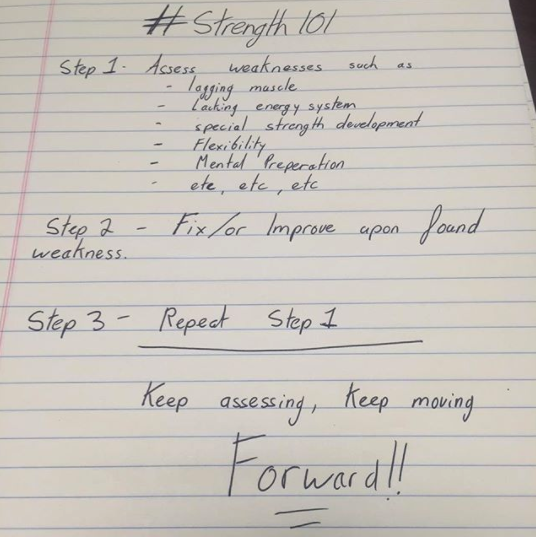 # Strength 101
Step 1- Assess weaknesses such as
- lagging muscle
- Lacking energy system
- special strength development
- Flexibility
- Mental Preperation
- etc, etc, etc
Step 2 - Fix/or Improve upon found
weakness.
Step 3 - Repeat Step 1
Keep assessing, Keep moving
Forward!!